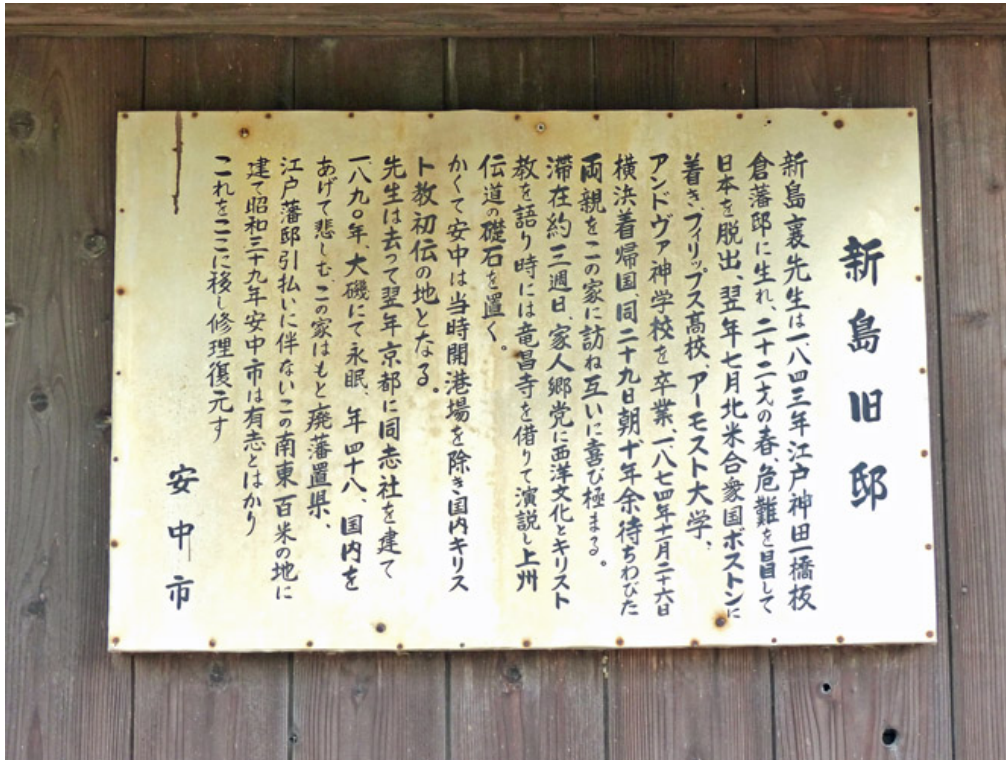 新島旧邸
新島襄先生は一八四三年江戸神田一橋板
倉藩邸に生れ、二十二才の春、危難を冒して
日本を脱出、翌年七月北米合衆国ボストンに
着き、フィリップス高校、アーモスト大学、
アンドヴァ神学校を卒業、一八七四年十一月二十六日
横浜着帰国、同二十九日朝十年余待ちわびた
両親をこの家に訪ね互いに喜び極まる。
滞在約三週日、家人郷党に西洋文化とキリスト
教を語り時には竜昌寺を借りて演説し上州
伝道の礎石を置く。
かくて安中は当時開港場を除き国内キリス
ト教初伝の地となる。
先生は去って翌年京都に同志社を建て
一八九〇年、大磯にて永眠、年四十八、国内を
あげて悲しむ、この家はもと廃藩置県、
江戸藩邸引払いに伴ないこの南東百米の地に
建て昭和三十九年安中市は有志とはかり
これをここに移し修理復元す
安中市